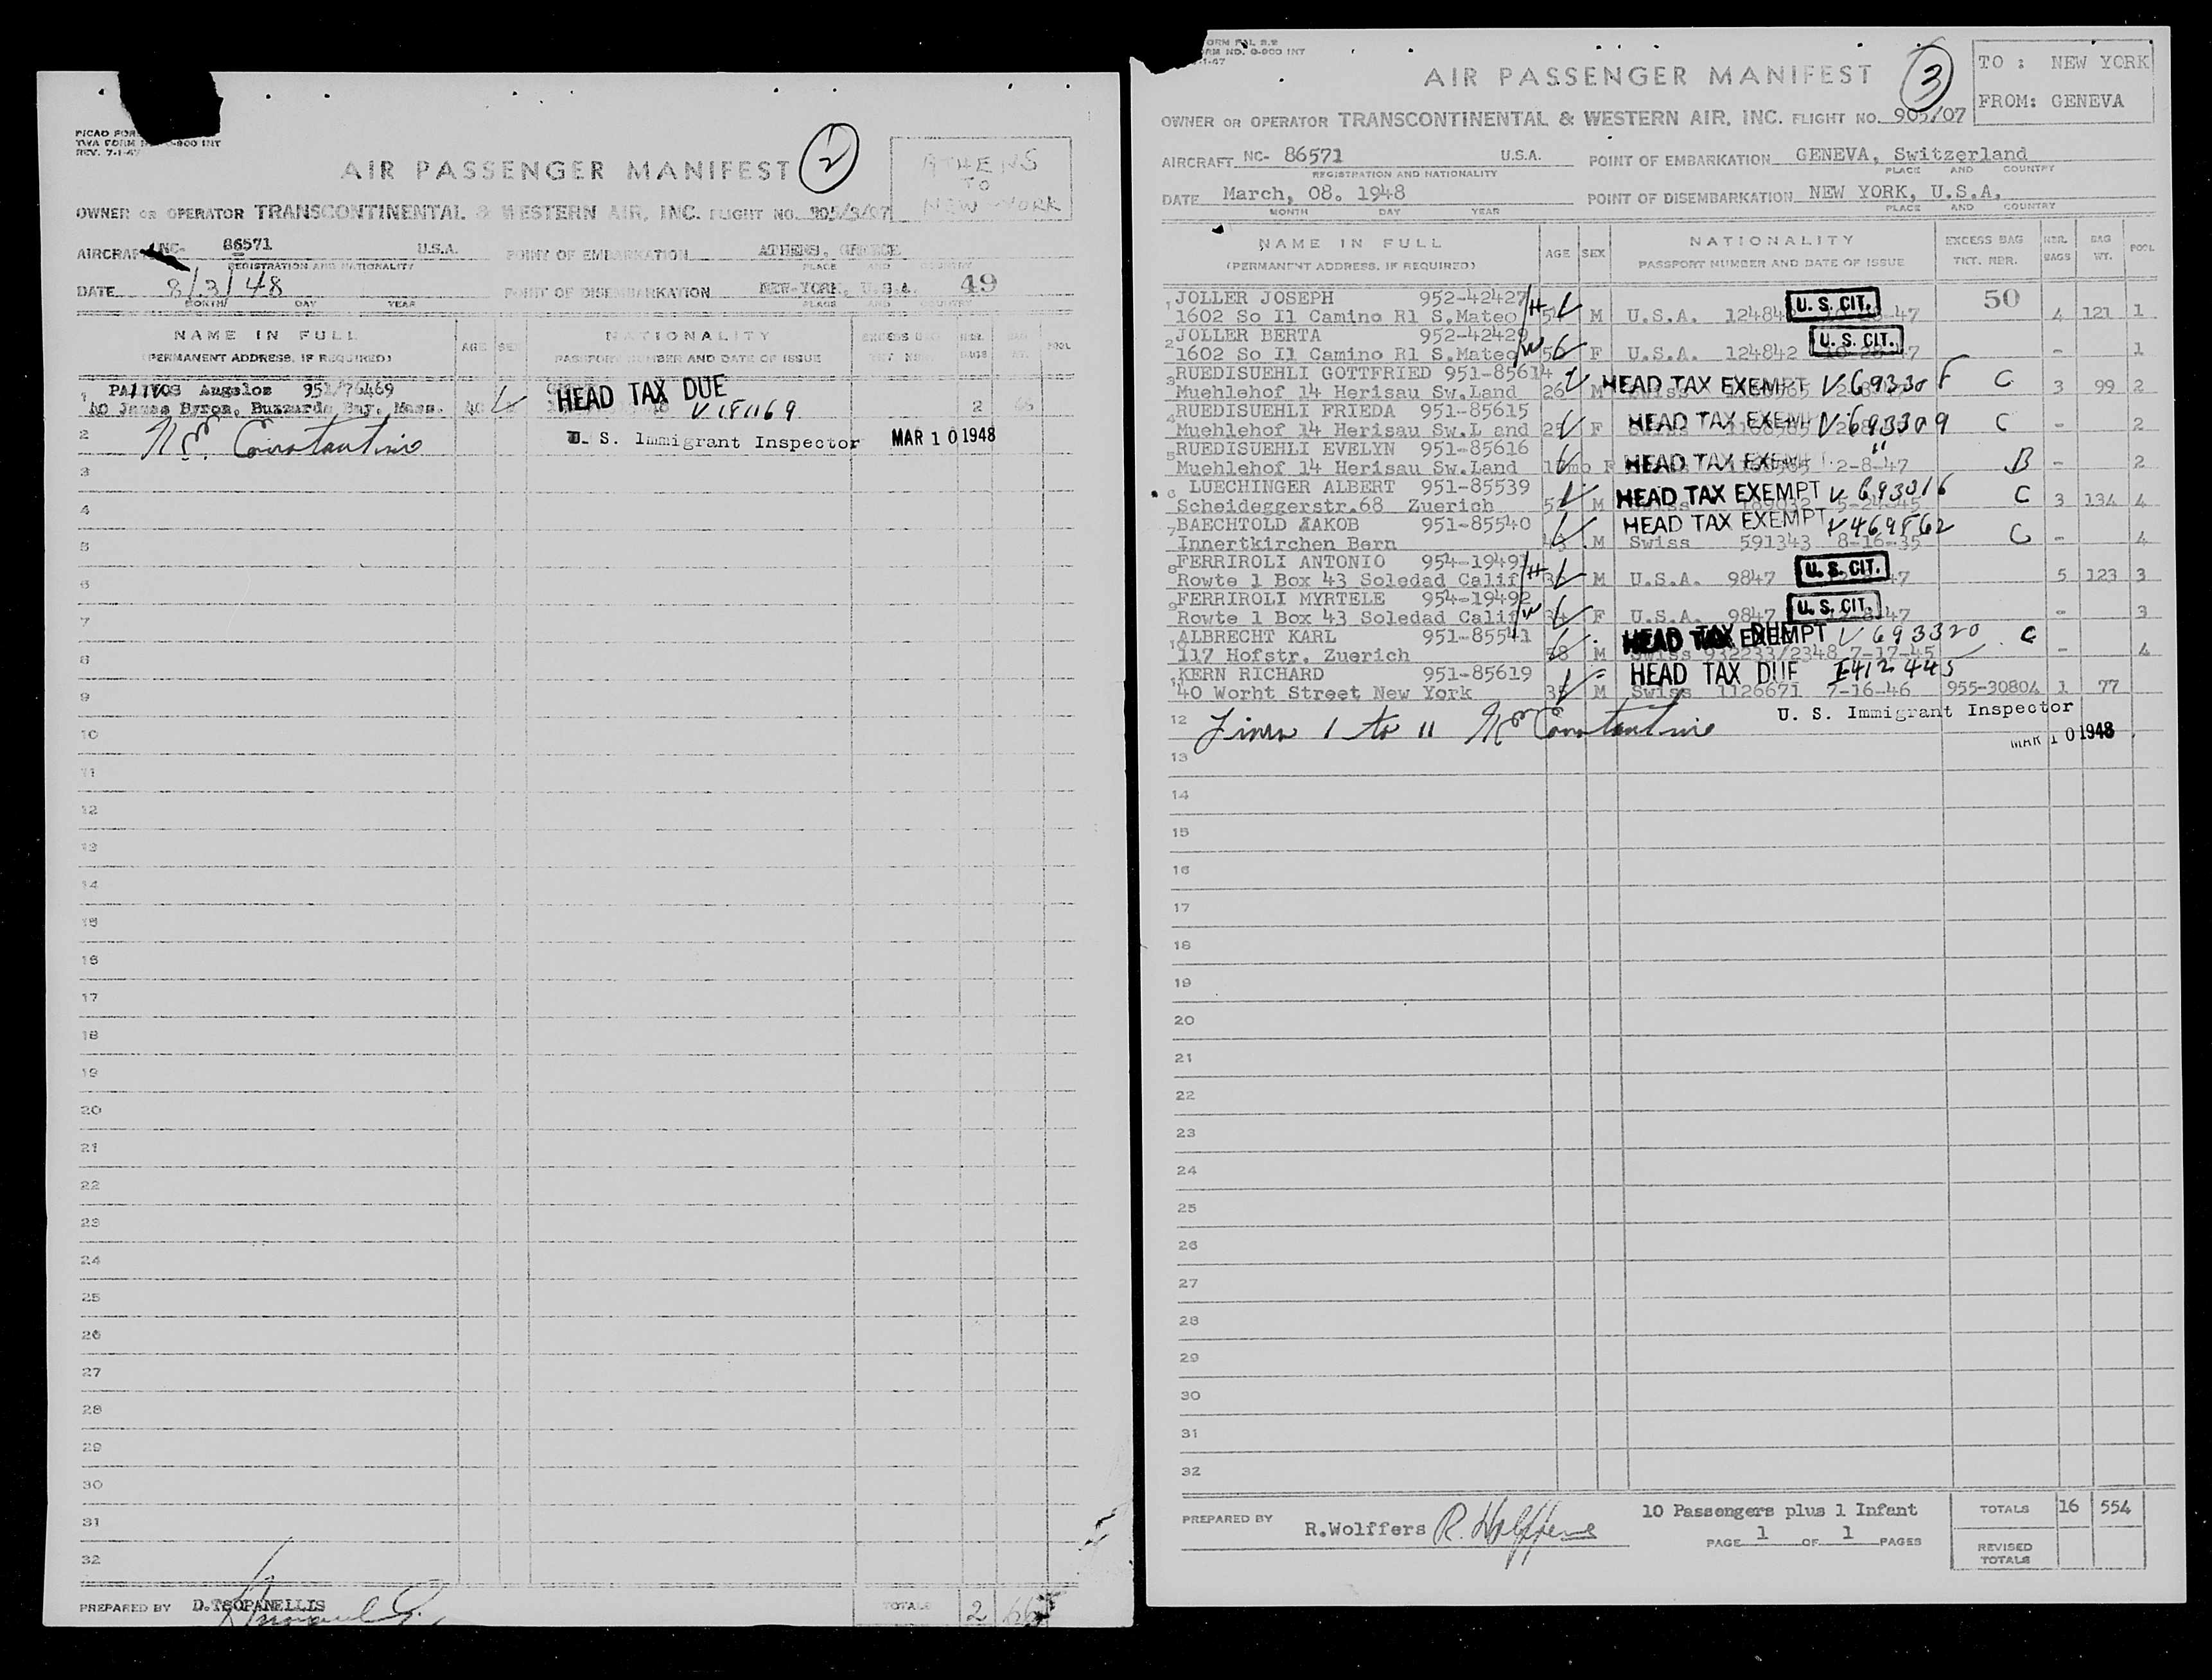 PICAO FOR
TWA FORM 0-900 INT
REV. 7-1-47
AIR PASSENGER MANIFEST
2
ATHENS
TO
NEW YORK
OWNER OR OPERATOR TRANSCONTINENTAL & WESTERN AIR, INC. FLIGHT NO. 905/3/07
AIRCRAFT NC- 86571 U.S.A. POINT OF EMBARKATION ATHENS, GREECE
REGISTRATION AND NATIONALITY PLACE AND COUNTRY
DATE 8/3/48 POINT OF DISEMBARKATION NEW-YORK, U.S.A. 49
MONTH DAY YEAR PLACE AND COUNTRY
NAME IN FULL AGE SEX NATIONALITY EXCESS BAG NBR. BAG POOL
(PERMANENT ADDRESS, IF REQUIRED) PASSPORT NUMBER AND DATE OF ISSUE TKT. NBR. BAGS WT.
1 Angelos 951/76469 HEAD TAX DUE
40 James Byron, Buzzards Bay, Mass. 40 2 66
2 U. S. Immigrant Inspector MAR 10 1948
3
4
5
6
7
8
9
10
11
12
13
14
15
16
17
18
19
20
21
22
23
24
25
26
27
28
29
30
31
32
PREPARED BY D.TSOPANELLIS TOTALS 2 66
ORM FAL R.2
RM NO. 0-900 INT
-1-47
AIR PASSENGER MANIFEST
3
TO : NEW YORK
FROM: GENEVA
OWNER OR OPERATOR TRANSCONTINENTAL & WESTERN AIR, INC. FLIGHT NO. 905/07
AIRCRAFT NC- 86571 U.S.A. POINT OF EMBARKATION GENEVA, Switzerland
REGISTRATION AND NATIONALITY PLACE AND COUNTRY
DATE March, 08. 1948 POINT OF DISEMBARKATION NEW YORK, U.S.A.
MONTH DAY YEAR PLACE AND COUNTRY
NAME IN FULL AGE SEX NATIONALITY EXCESS BAG NBR. BAG POOL
(PERMANENT ADDRESS, IF REQUIRED) PASSPORT NUMBER AND DATE OF ISSUE TKT. NBR. BAGS WT.
1 JOLLER JOSEPH 952-42427 H U. S. CIT. 50
1602 So Il Camino Rl S.Mateo M U.S.A. 47 4 121 1
2 JOLLER BERTA 952-42429 W U. S. CIT.
1602 So Il Camino Rl S.Mateo 56 F U.S.A. 124842 - 1
3 RUEDISUEHLI GOTTFRIED 951-85614 HEAD TAX EXEMPT V69330 F C
Muehlehof 14 Herisau Sw.Land 26 M Swiss 3 99 2
4 RUEDISUEHLI FRIEDA 951-85615 HEAD TAX EXEMPT V693309 C
Muehlehof 14 Herisau Sw.L and 25 F - 2
5 RUEDISUEHLI EVELYN 951-85616 HEAD TAX EXEMPT " B
Muehlehof 14 Herisau Sw.Land F 2-8-47 - 2
6 LUECHINGER ALBERT 951-85539 HEAD TAX EXEMPT V 693016 C
Scheideggerstr.68 Zuerich M 3 134 4
7 BAECHTOLD JAKOB 951-85540 HEAD TAX EXEMPT V469862 C
Innertkirchen Bern M Swiss 591343 8-16-35 - 4
8 FERRIROLI ANTONIO 954-19491 H U. S. CIT.
Rowte 1 Box 43 Soledad Calif M U.S.A. 9847 47 5 123 3
9 FERRIROLI MYRTELE 954-19492 W U. S. CIT.
Rowte 1 Box 43 Soledad Calif F U.S.A. 9847 47 - 3
10 ALBRECHT KARL 951-85541 HEAD TAX EXEMPT V 693320 C
117 Hofstr. Zuerich M Swiss 932233/2348 7-17-45 - 4
11 KERN RICHARD 951-85619 HEAD TAX DUE I412445
40 Worht Street New York M Swiss 1126671 7-16-46 955-30804 1 77
12 Lines 1 to 11 U. S. Immigrant Inspector
MAR 10 1948
13
14
15
16
17
18
19
20
21
22
23
24
25
26
27
28
29
30
31
32
PREPARED BY R.Wolffers R. Wolffers 10 Passengers plus 1 Infant TOTALS 16 554
PAGE 1 OF 1 PAGES REVISED TOTALS